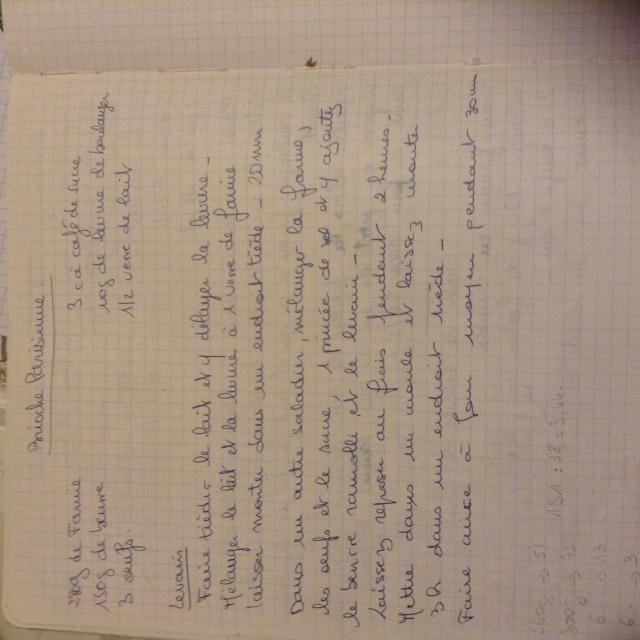 Brioche Parisienne
250g de Farine
150g de beurre
3 oeufs.
3 c à café de sucre
10g de levure de boulanger
1/2 verre de lait
Levain
Faire tiédir le lait et y délayer la levure -
Mélanger le lait et la levure à 1 verre de farine
laisser monter dans un endroit tiède - 20 mn
Dans un autre saladier, mélanger la farine,
les oeufs et le sucre, 1 pincée de sel et y ajoutez
le beurre ramolli et le levain -
Laissez reposer au frais pendant 2 heures -
Mettre dans un moule et laissez monter
3h dans un endroit tiède -
Faire cuire à four moyen pendant 30 mn